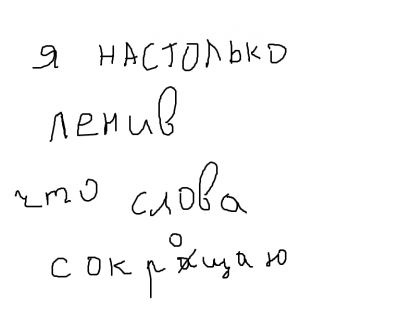 я настолько
ленив
что слова
сокрощаю